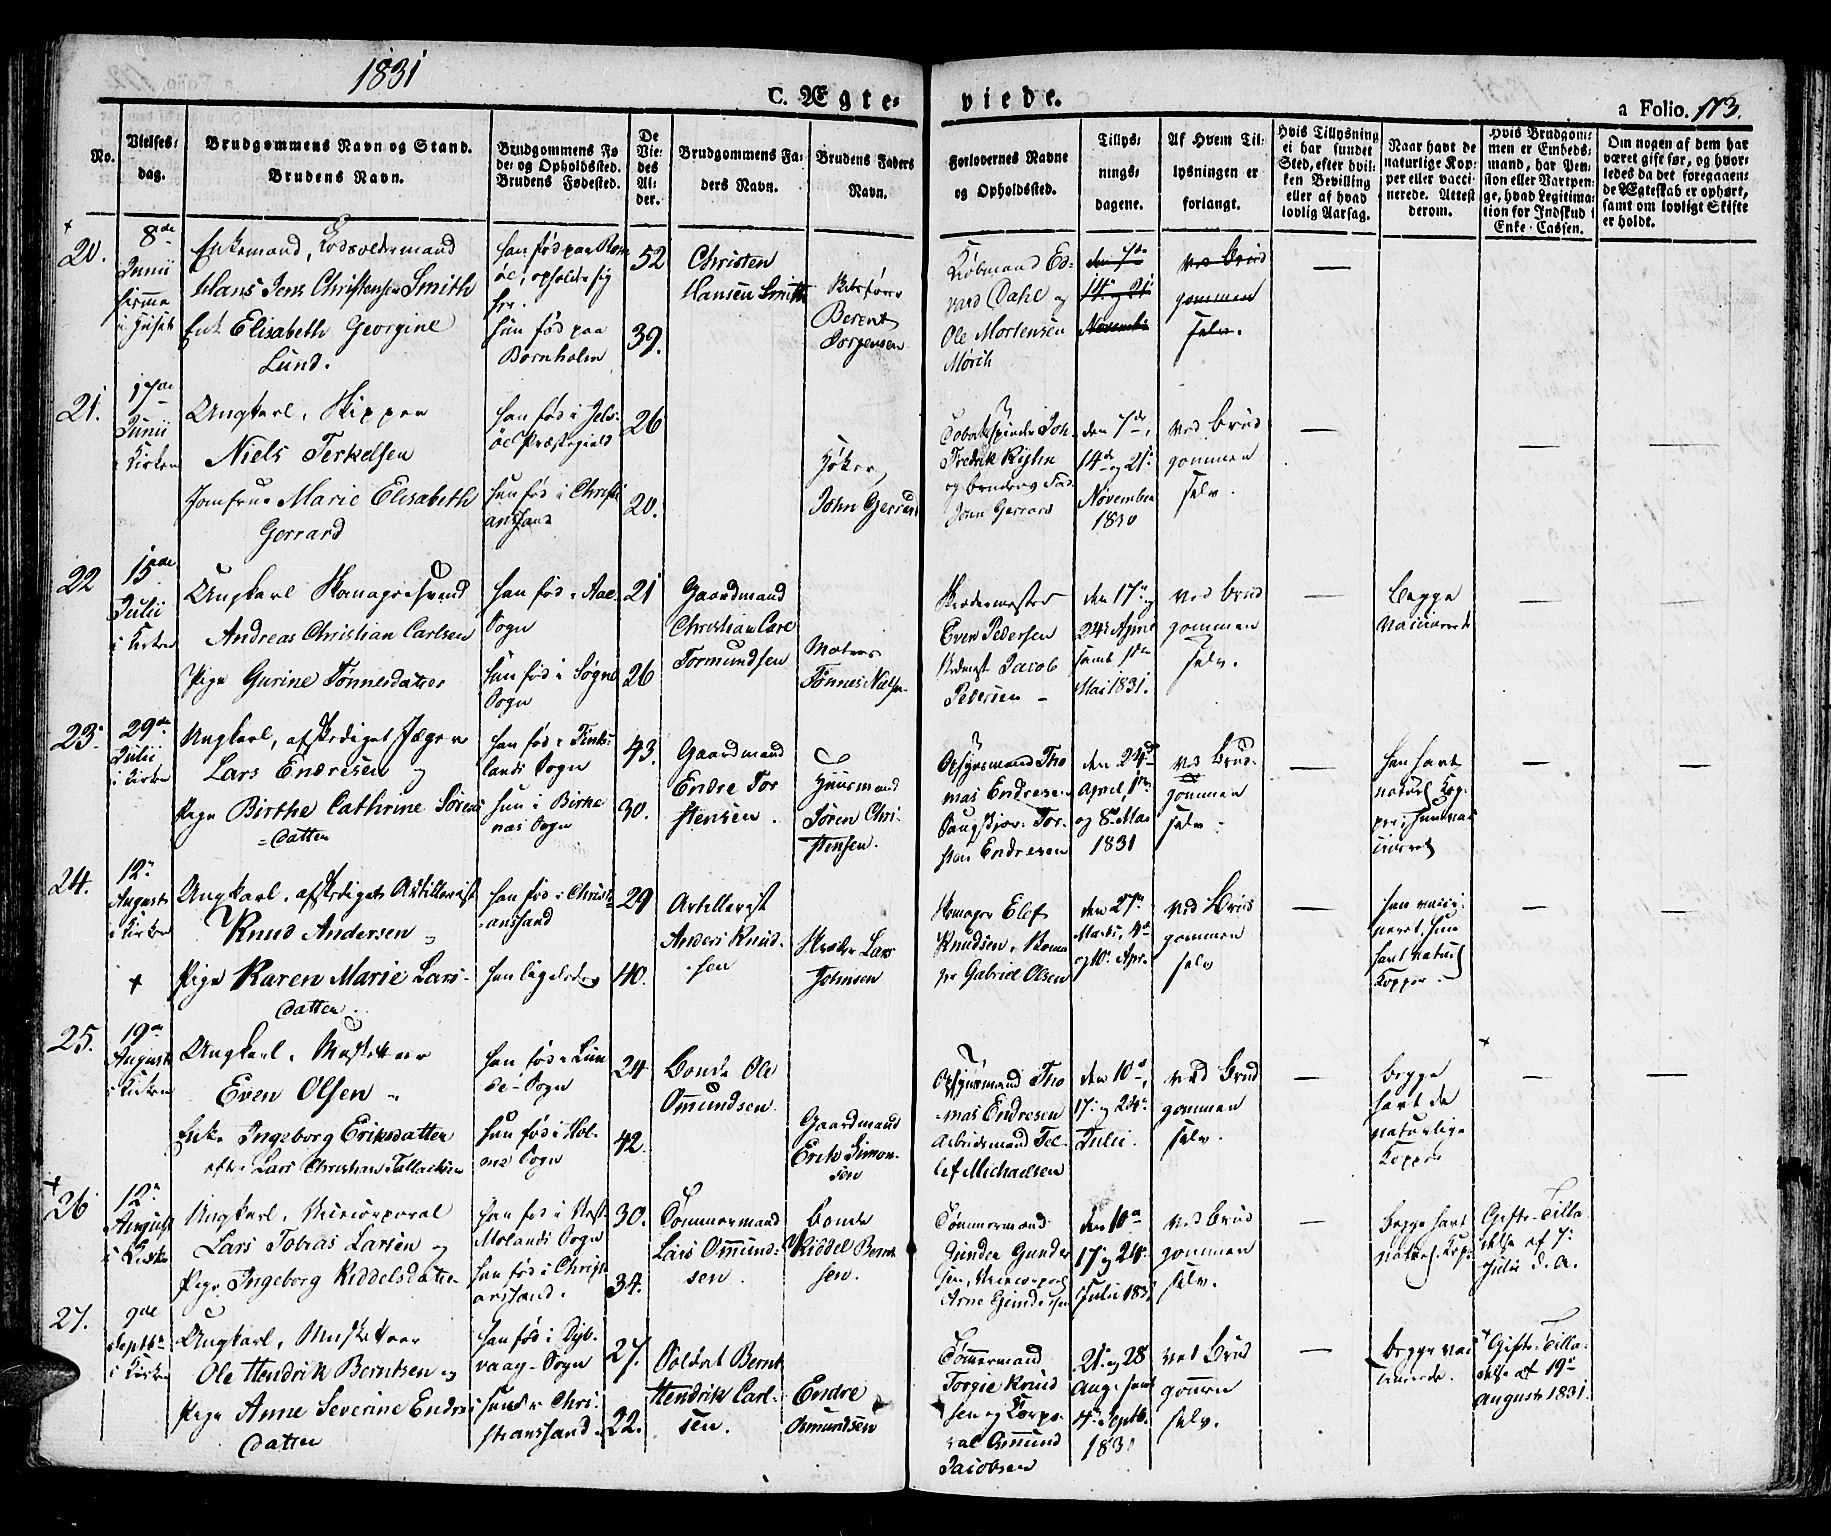 1831
C. Ægte-
viede.
a Folio. 173.
No.
Vielses-
dag.
Brudgommens Navn og Stand.
Brudens Navn.
Brudgommens Fø
de- og Opholdssted.
Brudens Fødested.
De
Vie-
des
Al-
der.
Brudgommens Fa-
ders Navn.
Brudens Faders
Navn.
Forlovernes Navne
og Opholdssted.
Tillys-
nings-
dagene.
Af Hvem Til-
lysningen er
forlangt.
Hvis Tillysning
ei har fundet
Sted, efter hvil-
ken Bevilling
eller af hvad
lovlig Aarsag.
Naar havt de
naturlige Kop-
per eller vacci-
nerede. Attest
derom.
Hvis Brudgom-
men er Embeds-
mand, har Pen-
sion eller Vartpen-
ge, hvad Legitima-
tion for Indskud i
Enke-Cassen.
Om nogen af dem har
været gift før, og hvor-
ledes da det foregaaen-
de Ægteskab er ophørt,
samt om lovligt Skifte
er holdt.
20.
8de
Junii
hjemme
i Huset
Enkemand,
Hans Jens Christensen Smith
Enke Elisabeth Georgine
Lund.
han fød paa Born
opholder sig
her.
hun fød paa
Bornholm
52
39.
Christen
Hansen Smith
Berent
Jørgensen
Kiøbmand Ed-
vard Dahl og
Ole Mortensen
Mørch
den 7de
14de og 21
November
ved Brud
gommen
selv.
21.
17de
Junii
i Kirken
Ungkarl, Skipper
Niels Terkelsen
Jomfrue Marie Elisabeth
Gerrard
han fød i
Præstegield
hun fød i Christi
anssand
26
20.
John Gerrard
Fredrik
og Brudens Fad.
John Gerrard
den 7de,
14de og 21.
November
1830
ved Brud
gommen
selv.
22
15de
Julii
i Kirken
Ungkarl Skomagersvend
Andreas Christian Carlsen
Pige Gurine Tønnesdatter
han fød i
Sogn
hun fød i Søgne
Sogn
21
26
Gaardmand
Christian Carl
Tormundsen
Matros
Tønnes
Skredermester
Even Pedersen
Jacob
Pedersen
den 17de og
24de April
samt 1ste
Mai 1831.
ved Brud
gommen
selv.
Begge
vaccinerede
23.
29de
Julii
i Kirken
Ungkarl, afskediget Jæger
Lars Endresen og
Pige Birthe Cathrine Sørens
-datter
han fød i
lands Sogn
hun i Birke
næs Sogn
43.
30.
Gaardmand
Endre Tor
stensen.
Huusmand
Søren Chri-
stensen.
Opsynsmand Tho
mas Endresen
Tor-
sten Endresen
den 24de
April, 1ste
og 8de Mai
1831
ved Brud-
gommen
selv.
han havt
naturl. Kop-
per, hun vac
cineret
24.
12te
August
i Kirken
Ungkarl, afskediget Artillerist
Knud Andersen
Pige Karen Marie Lars-
datter.
han fød i Christi
anssand
hun ligeledes
29
40.
Artillerist
Anders Knud-
sen
Skræder Lars
Johnsen
Skomager Elef
Knudsen,
Gabriel Olsen
den 27de
Marts, 4de
og 10. Apr.
ved Brud
gommen
selv
han vacci-
neret, hun
havt naturl.
Kopper.
25.
19de
August
i Kirken
Ungkarl, Musketeer
Even Olsen
Enke Ingeborg Eriksdatter
efter Lars Christian Tallachsen
han fød i Lun
de-Sogn
hun fød i Hol-
me Sogn
24
42.
Bonde Ole
Omundsen.
Gaardmand
Erik Simon-
sen
Opsynsmand Tho
mas Endresen
Arbeidsmand Tel-
lef Michaelsen
den 10de,
17. og 24de
Julii.
ved Brud
gommen
selv.
begge
havt de
naturlige
Kopper
26
12te
August
i Kirke
Ungkarl, Vicecorporal
Lars Tobias Larsen og
Pige Ingeborg Riddelsdatter
han fød i Vest-
Molands Sogn
hun fød i Christi
anssand.
30.
34.
Tømmermand
Lars Omund-
sen.
Bonde
Riddel Bernt
sen.
Tømmermand
Gunder Gunder
sen, Vicecorporal
Arne Gundersen
den 10de
17. og 24de
Julii 1831
ved Brud
gommen
selv.
begge havt
naturl. Kop.
Gifte-Tilla
delse af 7.
Julii d. A.
27.
9de
Septbr.
i Kirken
Ungkarl, Musketeer
Ole Hendrik Berntsen og
Pige Anne Severine Endres
datter
han fød i Dyb-
vaag-Sogn
hun i Chri-
stianssand.
27.
22.
Soldat Bernt
Hendrik Carl-
sen.
Endre
Osmundsen
Tømmermand
Torgie Knud
sen og Corpo-
ral Osmund
Jacobsen
21. og 28
Aug. samt
4de Septb.
1831
ved Brud
gommen
selv.
begge vac
cinerede.
Gifte-Tilla-
delse af 19de
August 1831.